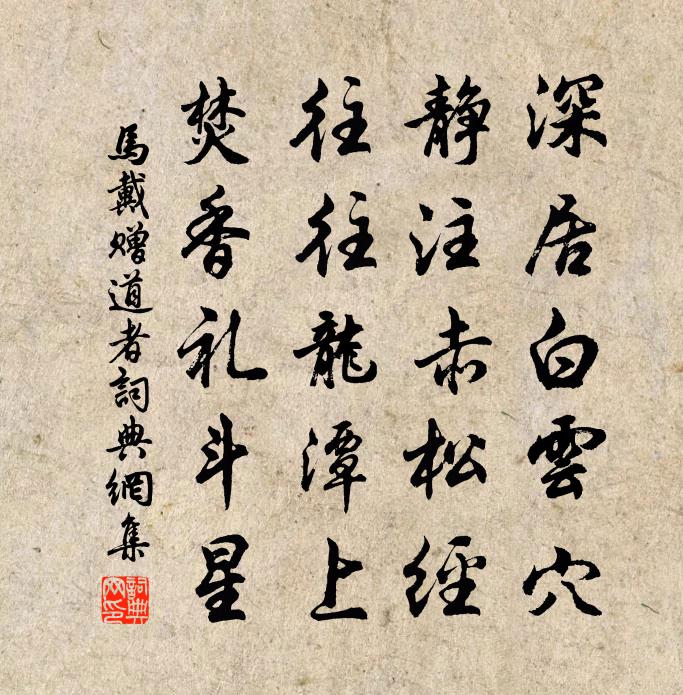 深居白雲穴
静注赤松經
往往龍潭上
焚香礼斗星
馬戴贈道者詞典網集
詞典網印